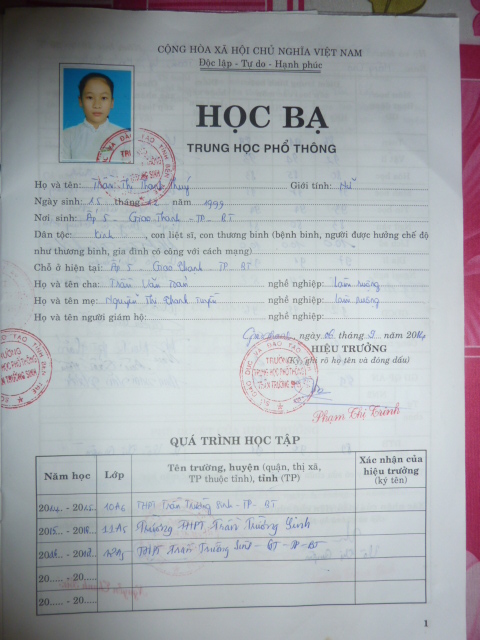 CỘNG HÒA XÃ HỘI CHỦ NGHĨA VIỆT NAM
Độc lập - Tự do - Hạnh phúc
HỌC BẠ
TRUNG HỌC PHỔ THÔNG
Họ và tên: Trần Thị Thanh Thuý Giới tính: Nữ
Ngày sinh: 15 tháng 12 năm 1999
Nơi sinh: Ấp 5 - Giao Thạnh - TP - BT
Dân tộc: Kinh, con liệt sĩ, con thương binh (bệnh binh, người được hưởng chế độ
như thương binh, gia đình có công với cách mạng)
Chỗ ở hiện tại: Ấp 5 - Giao Thạnh - TP - BT
Họ và tên cha: Trần Văn nghề nghiệp: làm ruộng
Họ và tên mẹ: Nguyễn Thị Thanh Tuyền nghề nghiệp: làm ruộng
Họ và tên người giám hộ: nghề nghiệp:
ngày 06 tháng 9 năm 2014
HIỆU TRƯỞNG
(Ký, ghi rõ họ tên và đóng dấu)
TRƯỜNG
TRUNG HỌC PHỔ THÔNG
TRẦN TRƯỜNG SINH
Phạm Thị Trinh
QUÁ TRÌNH HỌC TẬP
Năm học Lớp Tên trường, huyện (quận, thị xã, TP thuộc tỉnh), tỉnh (TP) Xác nhận của hiệu trưởng (ký tên)
2014 - 2015 10A6 THPT Trần Trường Sinh - TP - BT
2015 - 2016 11A5 Trường THPT Trần Trường Sinh
12A5 THPT Trần Trường Sinh - GT - TP - BT
20..... - 20.....
20..... - 20.....
1